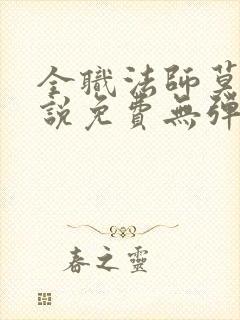 全職法師莫
說免費無彈
春之靈